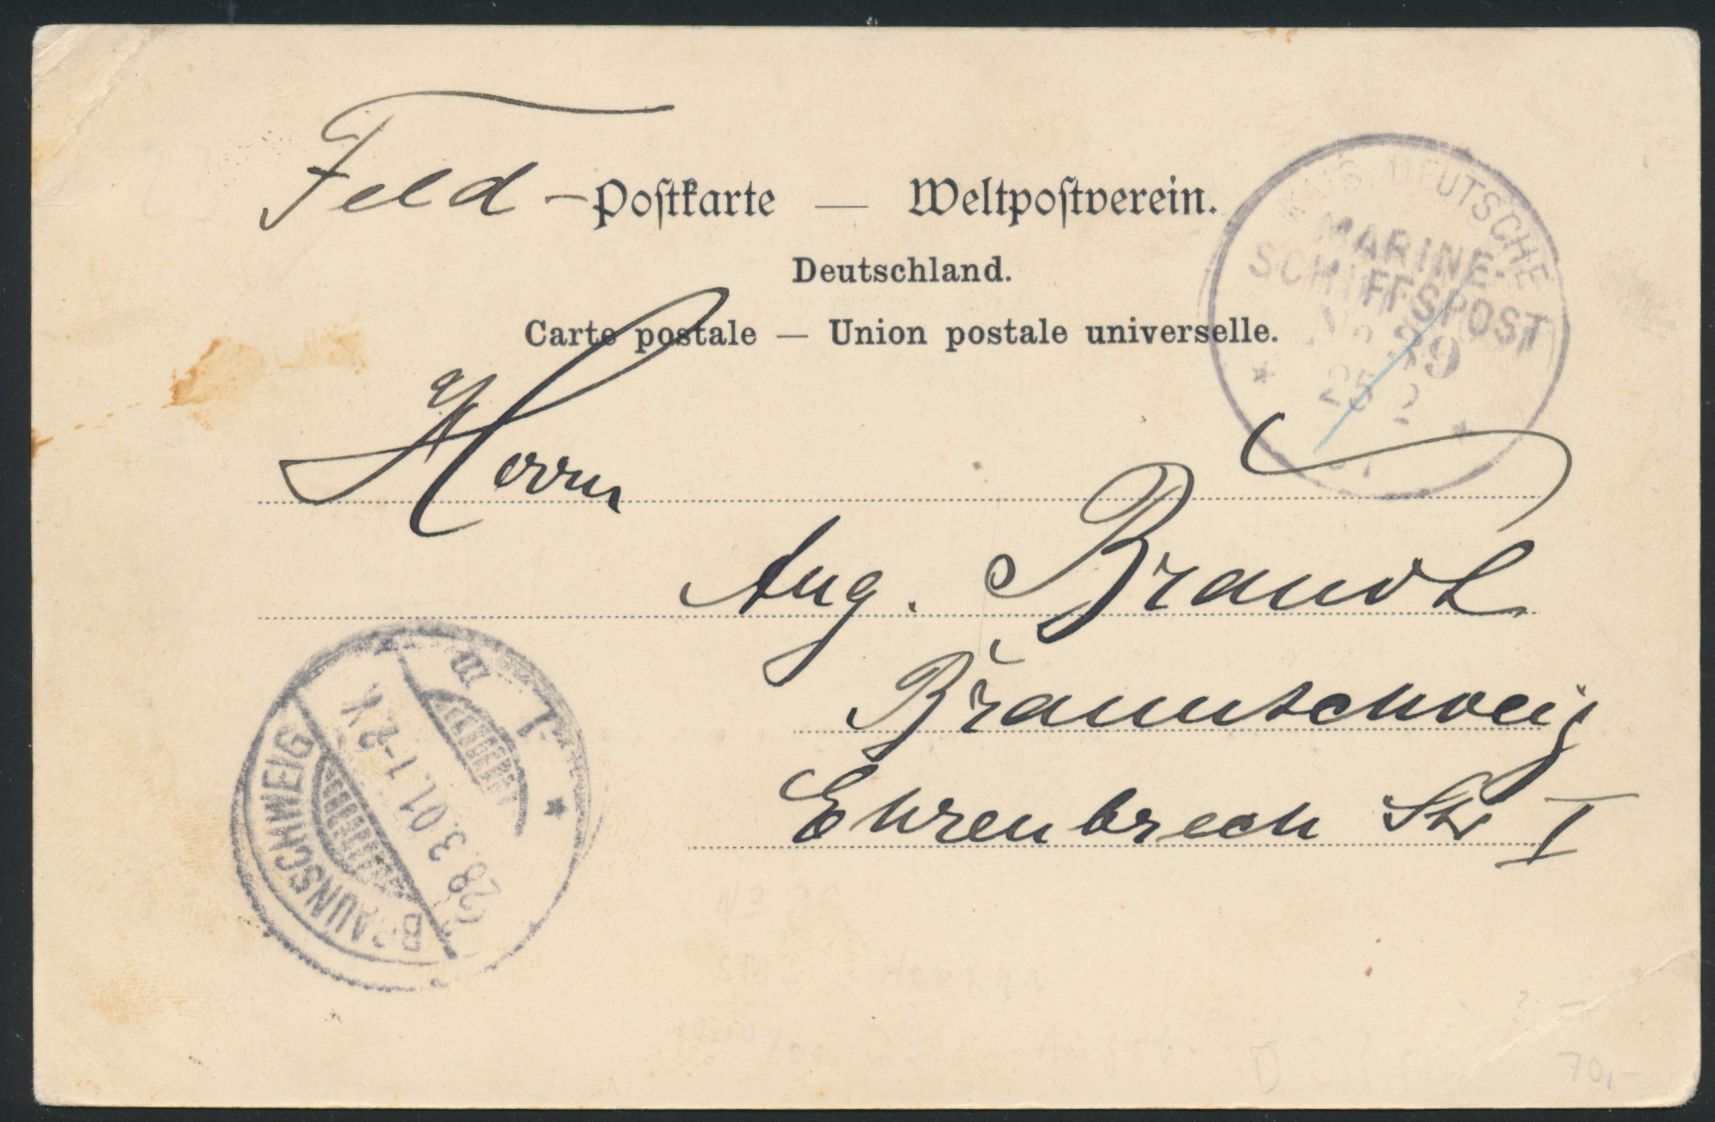 Feld-Postkarte — Weltpostverein.
Deutschland.
Carte postale — Union postale universelle.
KAIS. DEUTSCHE
MARINE-
SCHIFFSPOST
No 39
25 2
01
Herrn
Aug. Brandt
Braunschweig
Ehrenbrech Str I
BRAUNSCHWEIG
28.3.01. 1-2 V.
1 m
70,-